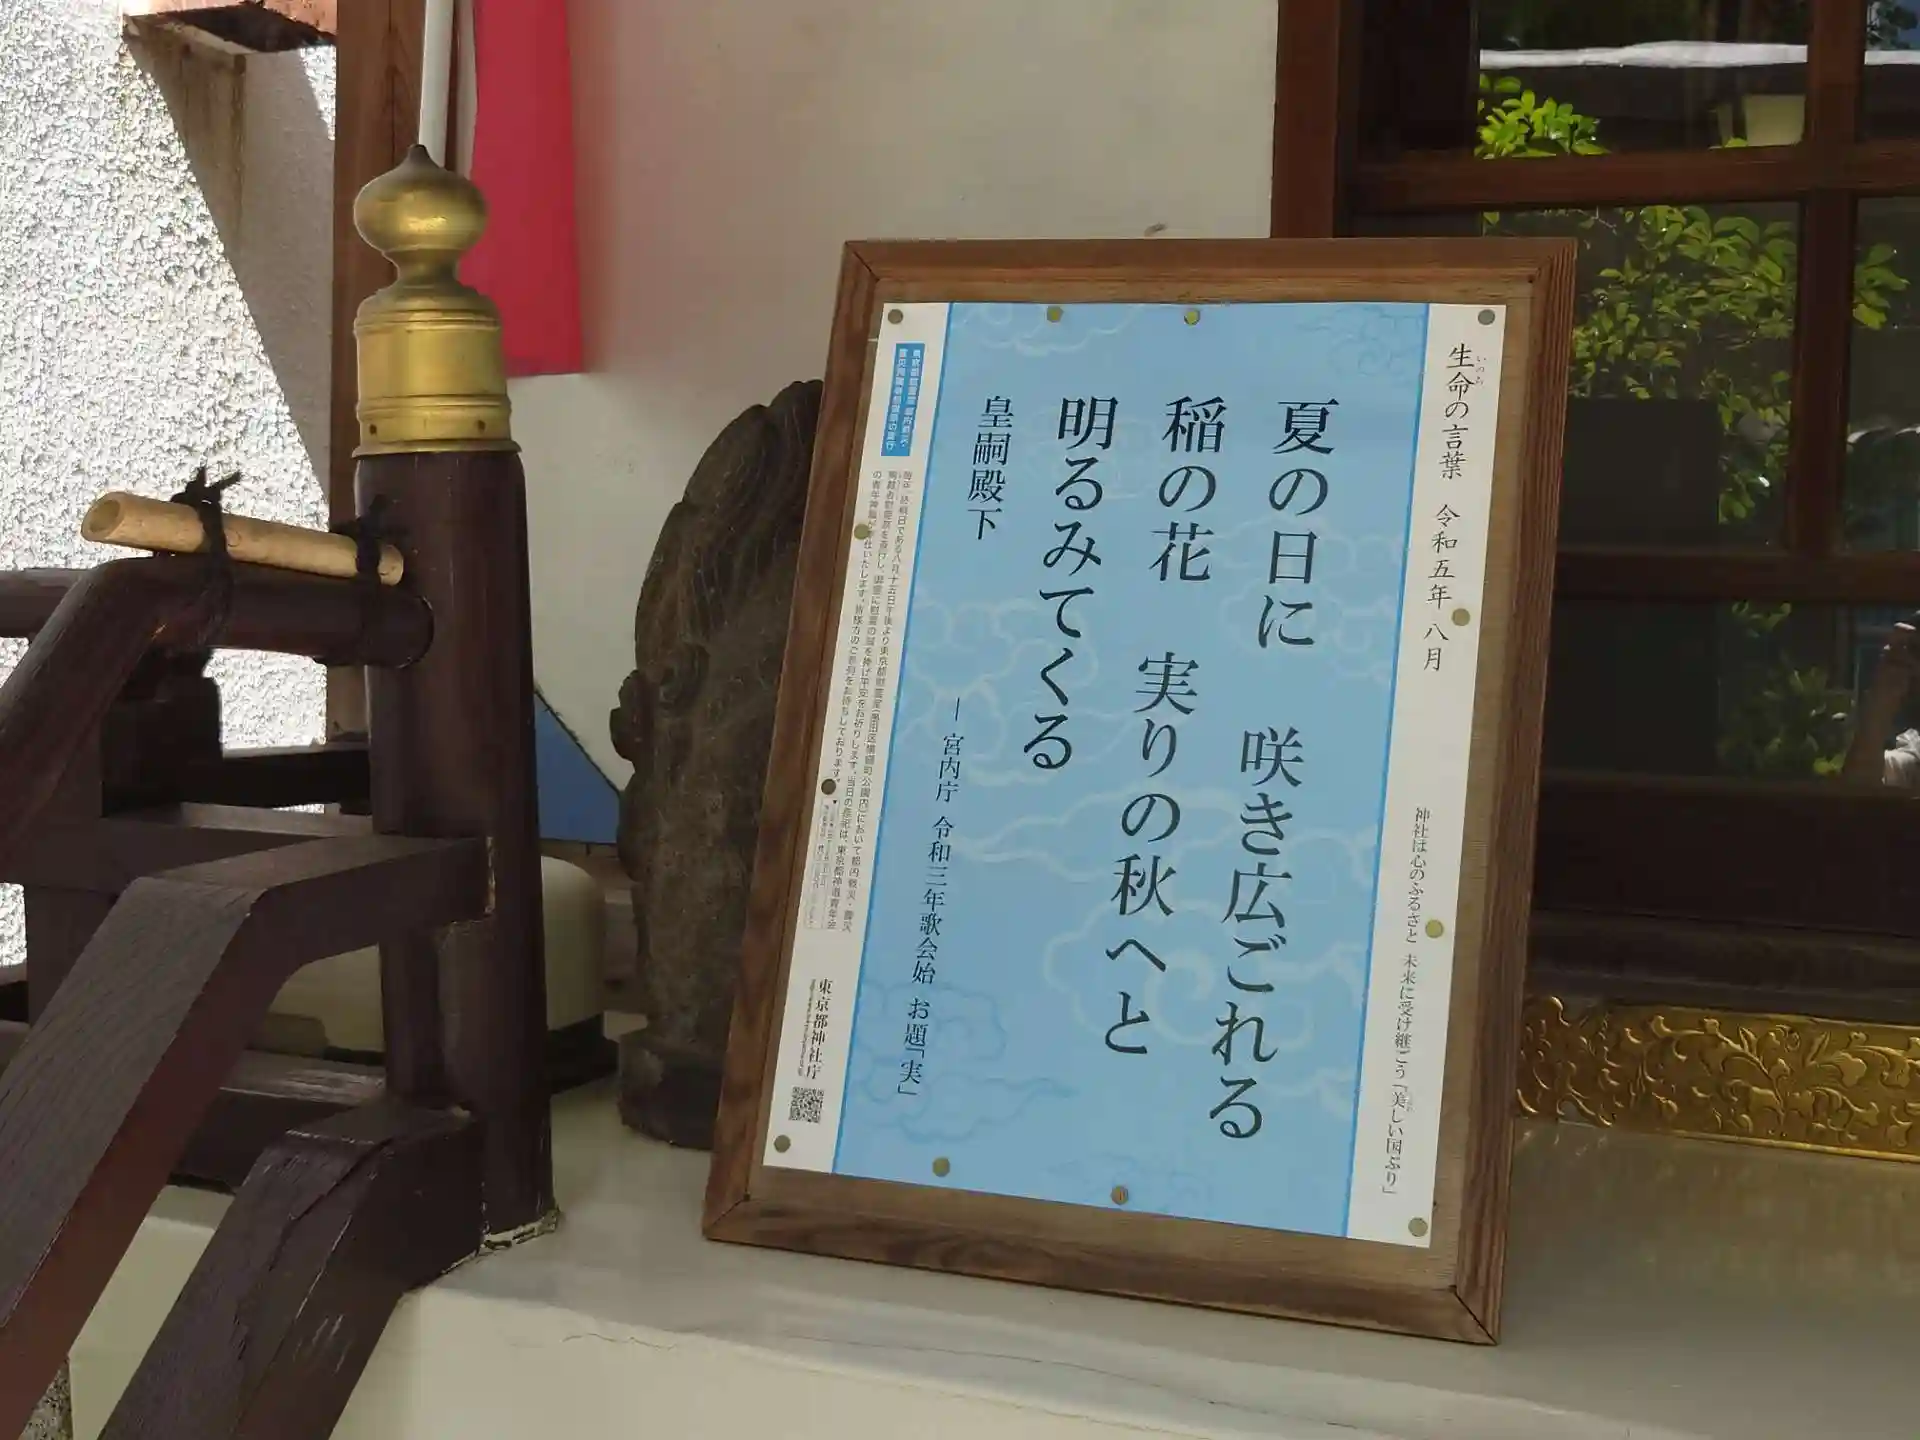 生命の言葉 令和五年 八月
いのち
神社は心のふるさと 未来に受け継ごう「美しい国ぶり」
夏の日に 咲き広ごれる
稲の花 実りの秋へと
明るみてくる
皇嗣殿下
― 宮内庁 令和三年歌会始 お題「実」
東京都慰霊堂 都内戦災・
震災殉難者慰霊祭の斎行
毎年、終戦日である八月十五日午後より東京都慰霊堂(墨田区横網町公園内)において都内戦災・震災
殉難者慰霊祭を斎行し、御霊に慰霊の誠を捧げ平安をお祈りします。当日の祭祀は、東京都神道青年会
の青年神職が奉仕いたします。皆様方のご参列をお待ちしております。
東京都神社庁